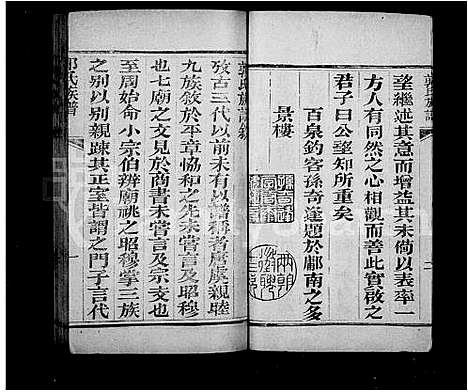 望繼述其意而增益其未備以表率一
方人有同然之心相觀而善此實啟之
君子曰公望知所重矣
百泉釣客孫奇逢題於鄘南之多
景樓
郭氏族譜敘
攷古三代以前未有以譜稱者唐虞親睦
九族敘於平章恊和之先未嘗言及昭穆
也七廟之文見於商書未嘗言及宗支也
至周始命小宗伯辨廟祧之昭穆掌三族
之別以別親疎其正室皆謂之門子言代
郭氏族譜
一